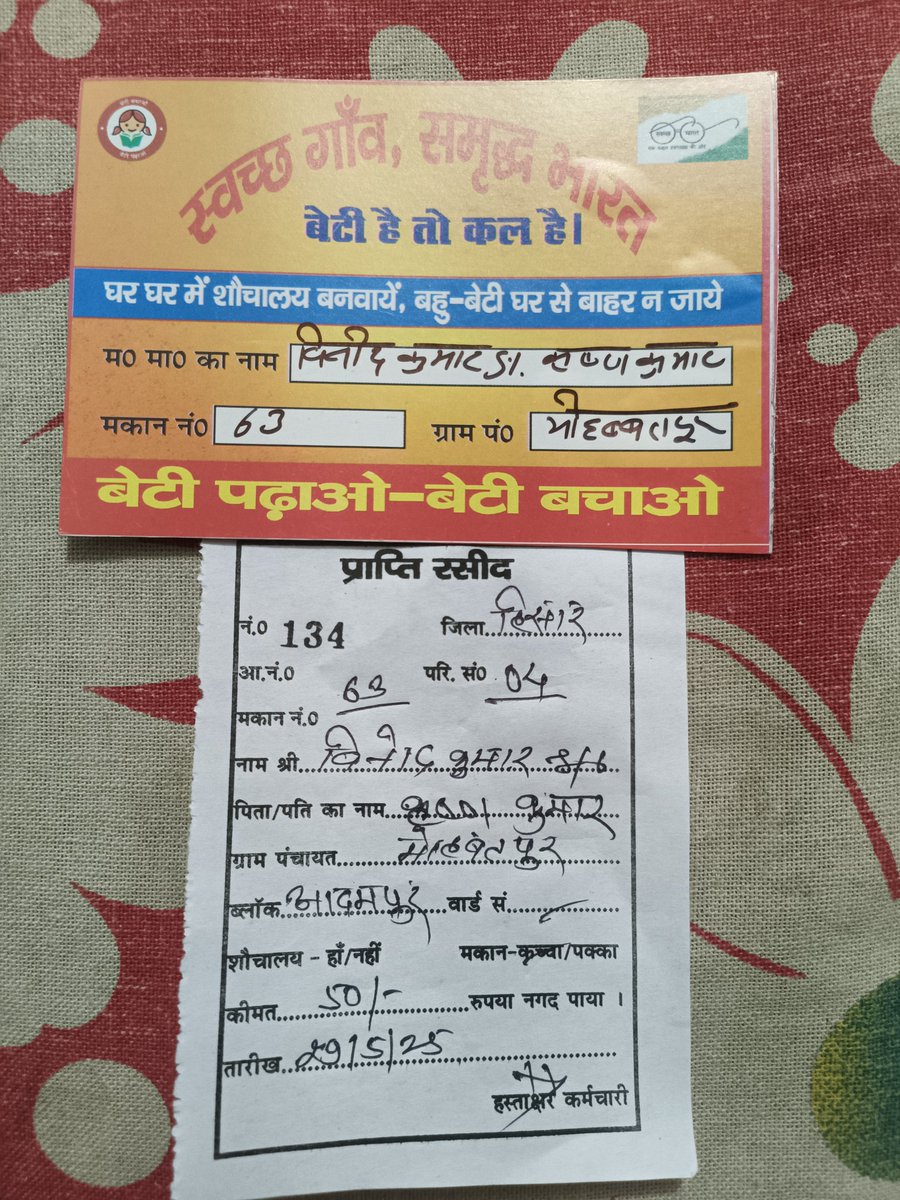 बेटी बचाओ
बेटी पढ़ाओ
स्वच्छ भारत
एक कदम स्वच्छता की ओर
स्वच्छ गाँव, समृद्ध भारत
बेटी है तो कल है।
घर घर में शौचालय बनवायें, बहु-बेटी घर से बाहर न जाये
म० मा० का नाम विनोद कुमार S/o. कृष्ण कुमार
मकान नं० 63 ग्राम पं० मोहब्बतपुर
बेटी पढ़ाओ-बेटी बचाओ
प्राप्ति रसीद
नं.० 134 जिला हिसार
आ.नं.० परि. सं० 04
63
मकान नं.०
नाम श्री विनोद कुमार S/o
पिता/पति का नाम कृष्ण कुमार
ग्राम पंचायत मोहबतपुर
ब्लॉक आदमपुर वार्ड सं.
शौचालय - हाँ/नहीं मकान-कच्चा/पक्का
कीमत 50/- रुपया नगद पाया ।
तारीख 29/5/25
हस्ताक्षर कर्मचारी